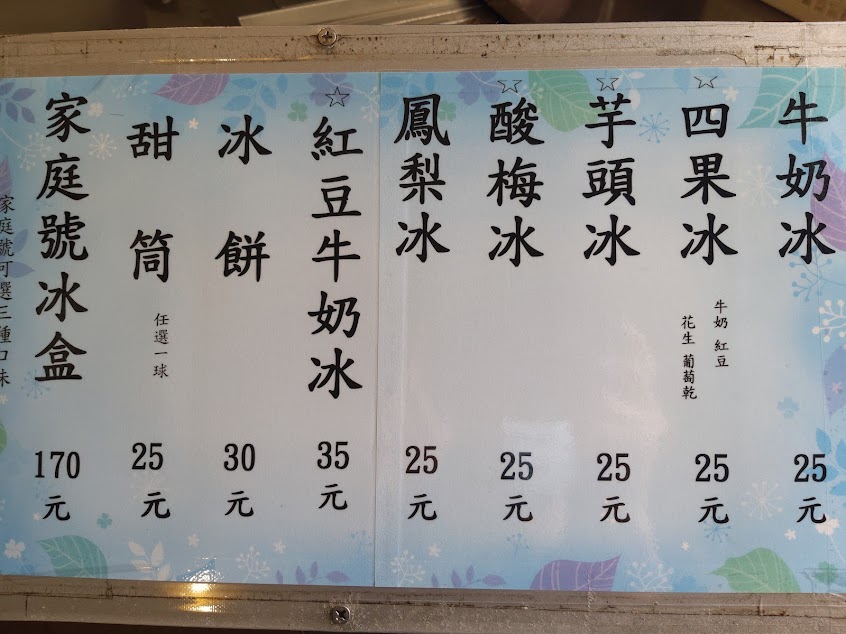 牛奶冰
25
元
☆
四果冰
牛奶 紅豆
花生 葡萄乾
25
元
☆
芋頭冰
25
元
☆
酸梅冰
25
元
鳳梨冰
25
元
☆
紅豆牛奶冰
35
元
冰餅
30
元
甜筒
任選一球
25
元
家庭號冰盒
170
元
家庭號可選三種口味